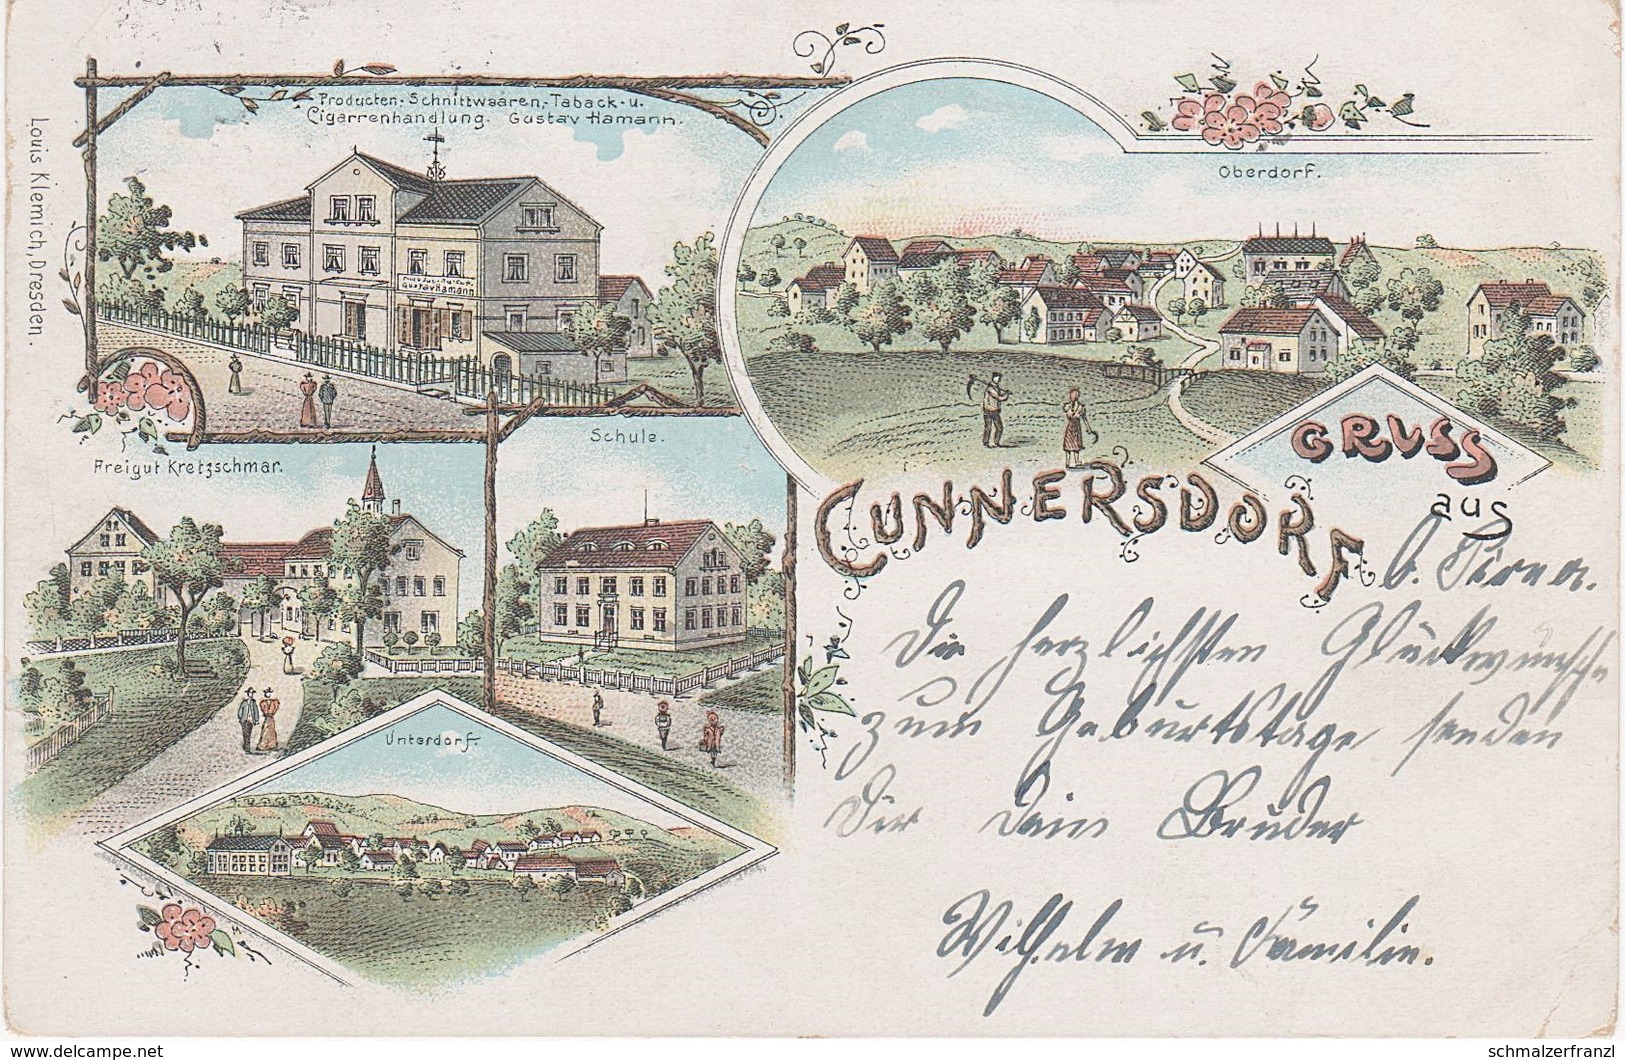 Producten-Schnittwaaren,-Taback-u.
Cigarrenhandlung. Gustav Hamann.
Gustav Hamann
Oberdorf.
Louis Klemich, Dresden.
Freigut Kretzschmar.
Schule.
Unterdorf.
GRUSS
aus
CUNNERSDORF
b. Pirna.
Die herzlichsten Glückwünsche
zum Geburtstage senden
Dir Dein Bruder
Wilhelm u. Familie.
delcampe.net
schmalzerfranzl